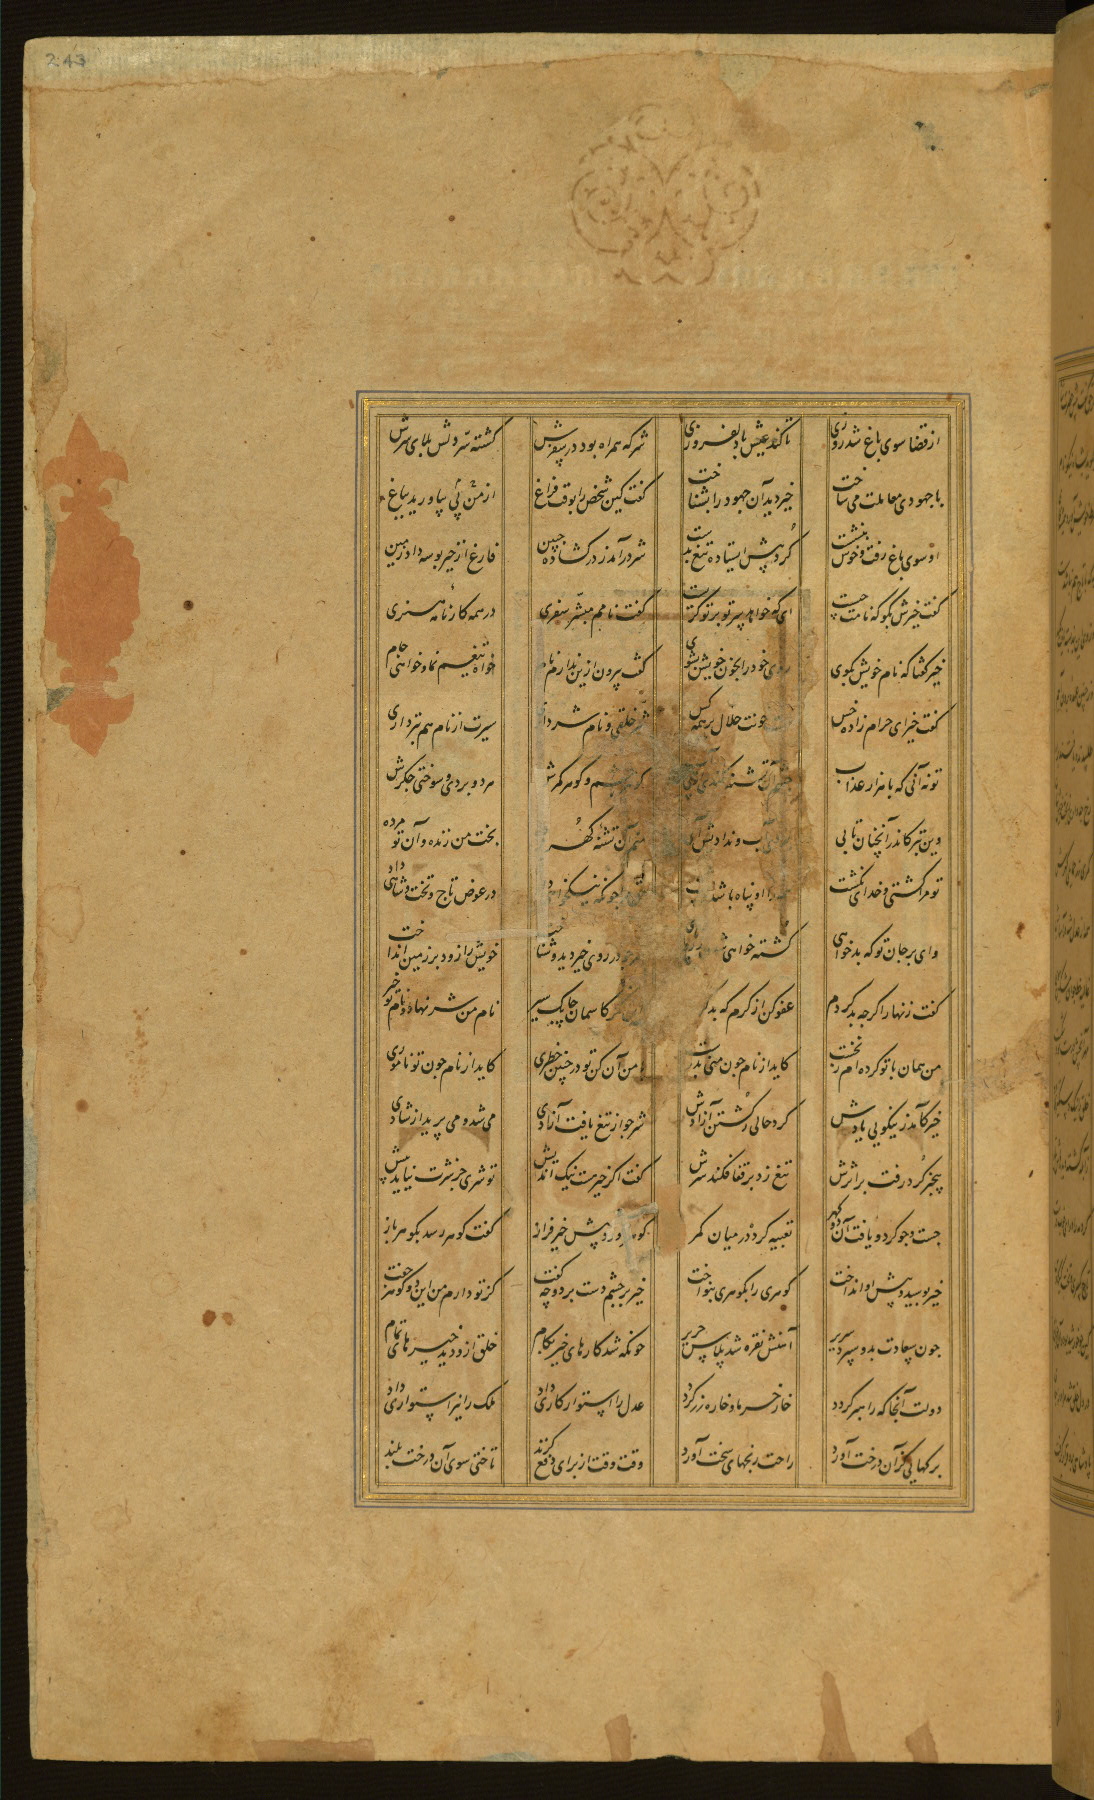 243
از قضا سوی باغ شد روزی تا کند عیش با دلفروزی شر که همراه بود در سفرش گشته سر بلای سرش
با جهودی معاملت می‌ساخت خیر دید آن جهود را بشناخت گفت کین شخص را بوقت فراغ از من پی بیاورید بباغ
او سوی باغ رفت و خوش بنشست کرد پیش ایستاده تیغ بدست شر درآمد ز در گشاده جبین فارغ از خیر بوسه داد زمین
گفت خیرش بگو که نامت چیست ای که خواهد سر تو بر تو گریست گفت نامم مبشر سفری در همه کارنامه هنری
خیر گفتا که نام خویش بگوی روی خود را بخون خویش بشوی گفت بیرون ازین ندارم نام خواه تیغم نما و خواهی جام
گفت خیر ای حرام زاده خس خونت حلال بر همه کس خلقی و نام شر داری سیرت از نام هم بتر داری
تو نه آنی که با هزار عذاب چشم آن تشنه کندی از پی آب چشم و گوهر کمرش هر دو بردی و سوختی جگرش
وین بتر کاندر آنچنان تابی آب و ندادیش آبی منم آن تشنه گهر بخت من زنده و آن تو مرده
تو مرا کشتی و خدای نکشت او پناه با شاهی در عوض تاج و تخت و شاهی داد
وای بر جان تو که بد خواهی کشته خواهی در روی خیر دید و شناخت خویش را زود بر زمین انداخت
گفت زنهار اگر چه بد کردم عفو کن از کرم که بد کاسمان چابک سیر نام من شر نهاد و نام تو خیر
من همان با تو کرده‌ام ز نخست کاید از نام چون منی بدرست با من آن کن تو در چنین خطری کاید از نام چون تو ناموری
خیر کآمد ز نیکویی یادش کرد حالی ز کشتن آزادش شر چو از تیغ یافت آزادی می‌شد و می پرید از شادی
پیخبر کرد رفت بر اثرش تیغ زد بر قفا فکند سرش گفت اگر خیرست نیک اندیش تو شری جز شرت نیاید پیش
جست و جو کرد و یافت آن دو گهر تعبیه کرده در میان کمر گوهر آورد پیش خیر فرازه گفت گوهر رسد بگوهر باز
خیر بوسید و پیش او انداخت گوهری را بگوهری بنواخت خیر بر چشم دست برد و چه گفت کز تو دارم من این دو گوهر جفت
چون سعادت بدو سپرد سریر آهنش نقره شد پلاس حریر چونکه شد کارهای خیر بکام خلق ازو دید خیرهای تمام
دولت آنجا که راهبر گردد خار خرما و خاره زر گردد عدل را استوار کاری داد ملک را نیز استواری داد
برگهایی کز آن درخت آورد راحت رنجهای سخت آورد وقت وقت از برای دفع گزند تاختی سوی آن درخت بلند